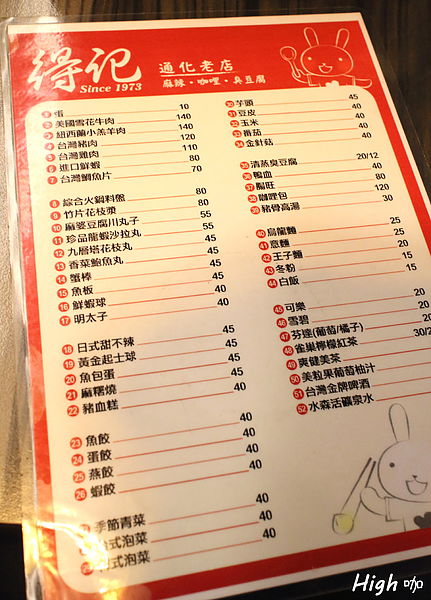 得记
Since 1973
通化老店
麻辣·咖哩·臭豆腐
蛋 10
2 美國雪花牛肉 140
紐西蘭小羔羊肉 140
4 台灣豬肉 120
5 台灣雞肉 110
6 進口鮮蝦 80
7 台灣鯛魚片 70
8 綜合火鍋料盤 80
9 竹片花枝漿 80
10 麻婆豆腐川丸子 55
11 珍品龍蝦沙拉丸 55
12 九層塔花枝丸 45
13 香菜鮑魚丸 45
14 蟹棒 45
15 魚板 40
16 鮮蝦球 40
17 明太子
18 日式甜不辣 45
19 黃金起士球 45
20 魚包蛋 45
21 麻糬燒 45
22 豬血糕 40
23 魚餃 40
24 蛋餃 40
25 燕餃 40
26 蝦餃 40
季節青菜 40
式泡菜 40
式泡菜 40
30 芋頭 45
31 豆皮
32 玉米
33 番茄
34 金針菇
35 清蒸臭豆腐 20/12
36 鴨血 40
37 腸旺 80
38 咖哩包 120
39 豬骨高湯 30
40 烏龍麵 25
41 意麵 25
42 王子麵 20
43 冬粉 15
44 白飯 15
45 可樂 20
46 雪碧 20
47 芬達(葡萄/橘子) 20
48 雀巢檸檬紅茶 30/2
49 爽健美茶
50 美粒果葡萄柚汁
51 台灣金牌啤酒
52 水森活礦泉水
High 咖